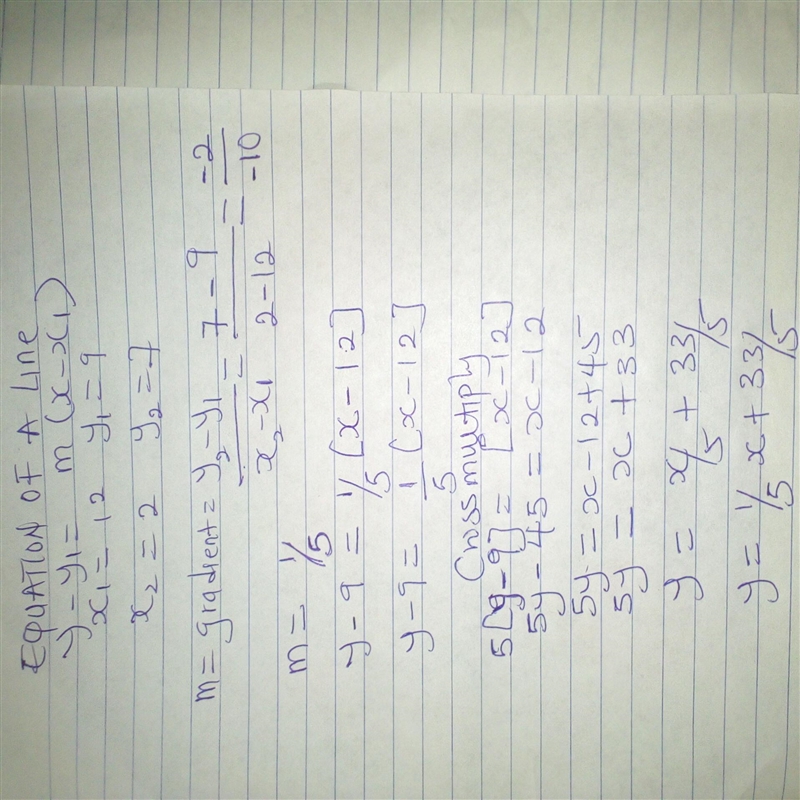 EQUATION OF A LINE
y-y₁= m(x-x₁)
x₁=12 y₁=9
x₂=2 y₂=7
m=gradient= y₂-y₁/x₂-x₁ = 7-9/2-12 = -2/-10
m= 1/5
y-9 = 1/5 [x-12]
y-9= 1/5 (x-12]
Cross multiply
5[y-9]= [x-12]
5y-45=x-12
5y=x-12+45
5y = x+33
y= x/5 + 33/5
y=1/5 x+33/5